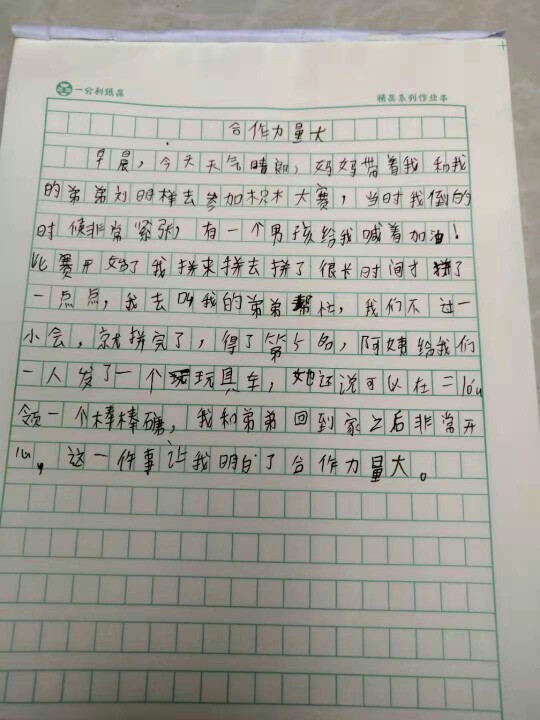 一公利纸品
精品系列作业本
合作力量大
早晨，今天天气晴朗，妈妈带着我和我
的弟弟刘明样去参加积木大赛，当时我倒的
时候非常紧张，有一个男孩给我喊着加油！
比赛开始了我拼来拼去拼了很长时间才拼了
一点点，我去叫我的弟弟帮忙，我们不过一
小会，就拼完了，得了第5名，阿姨给我们
一人发了一个玩具车，她还说可以在二lóu
领一个棒棒礳，我和弟弟回到家之后非常开
心，这一件事让我明白了合作力量大。